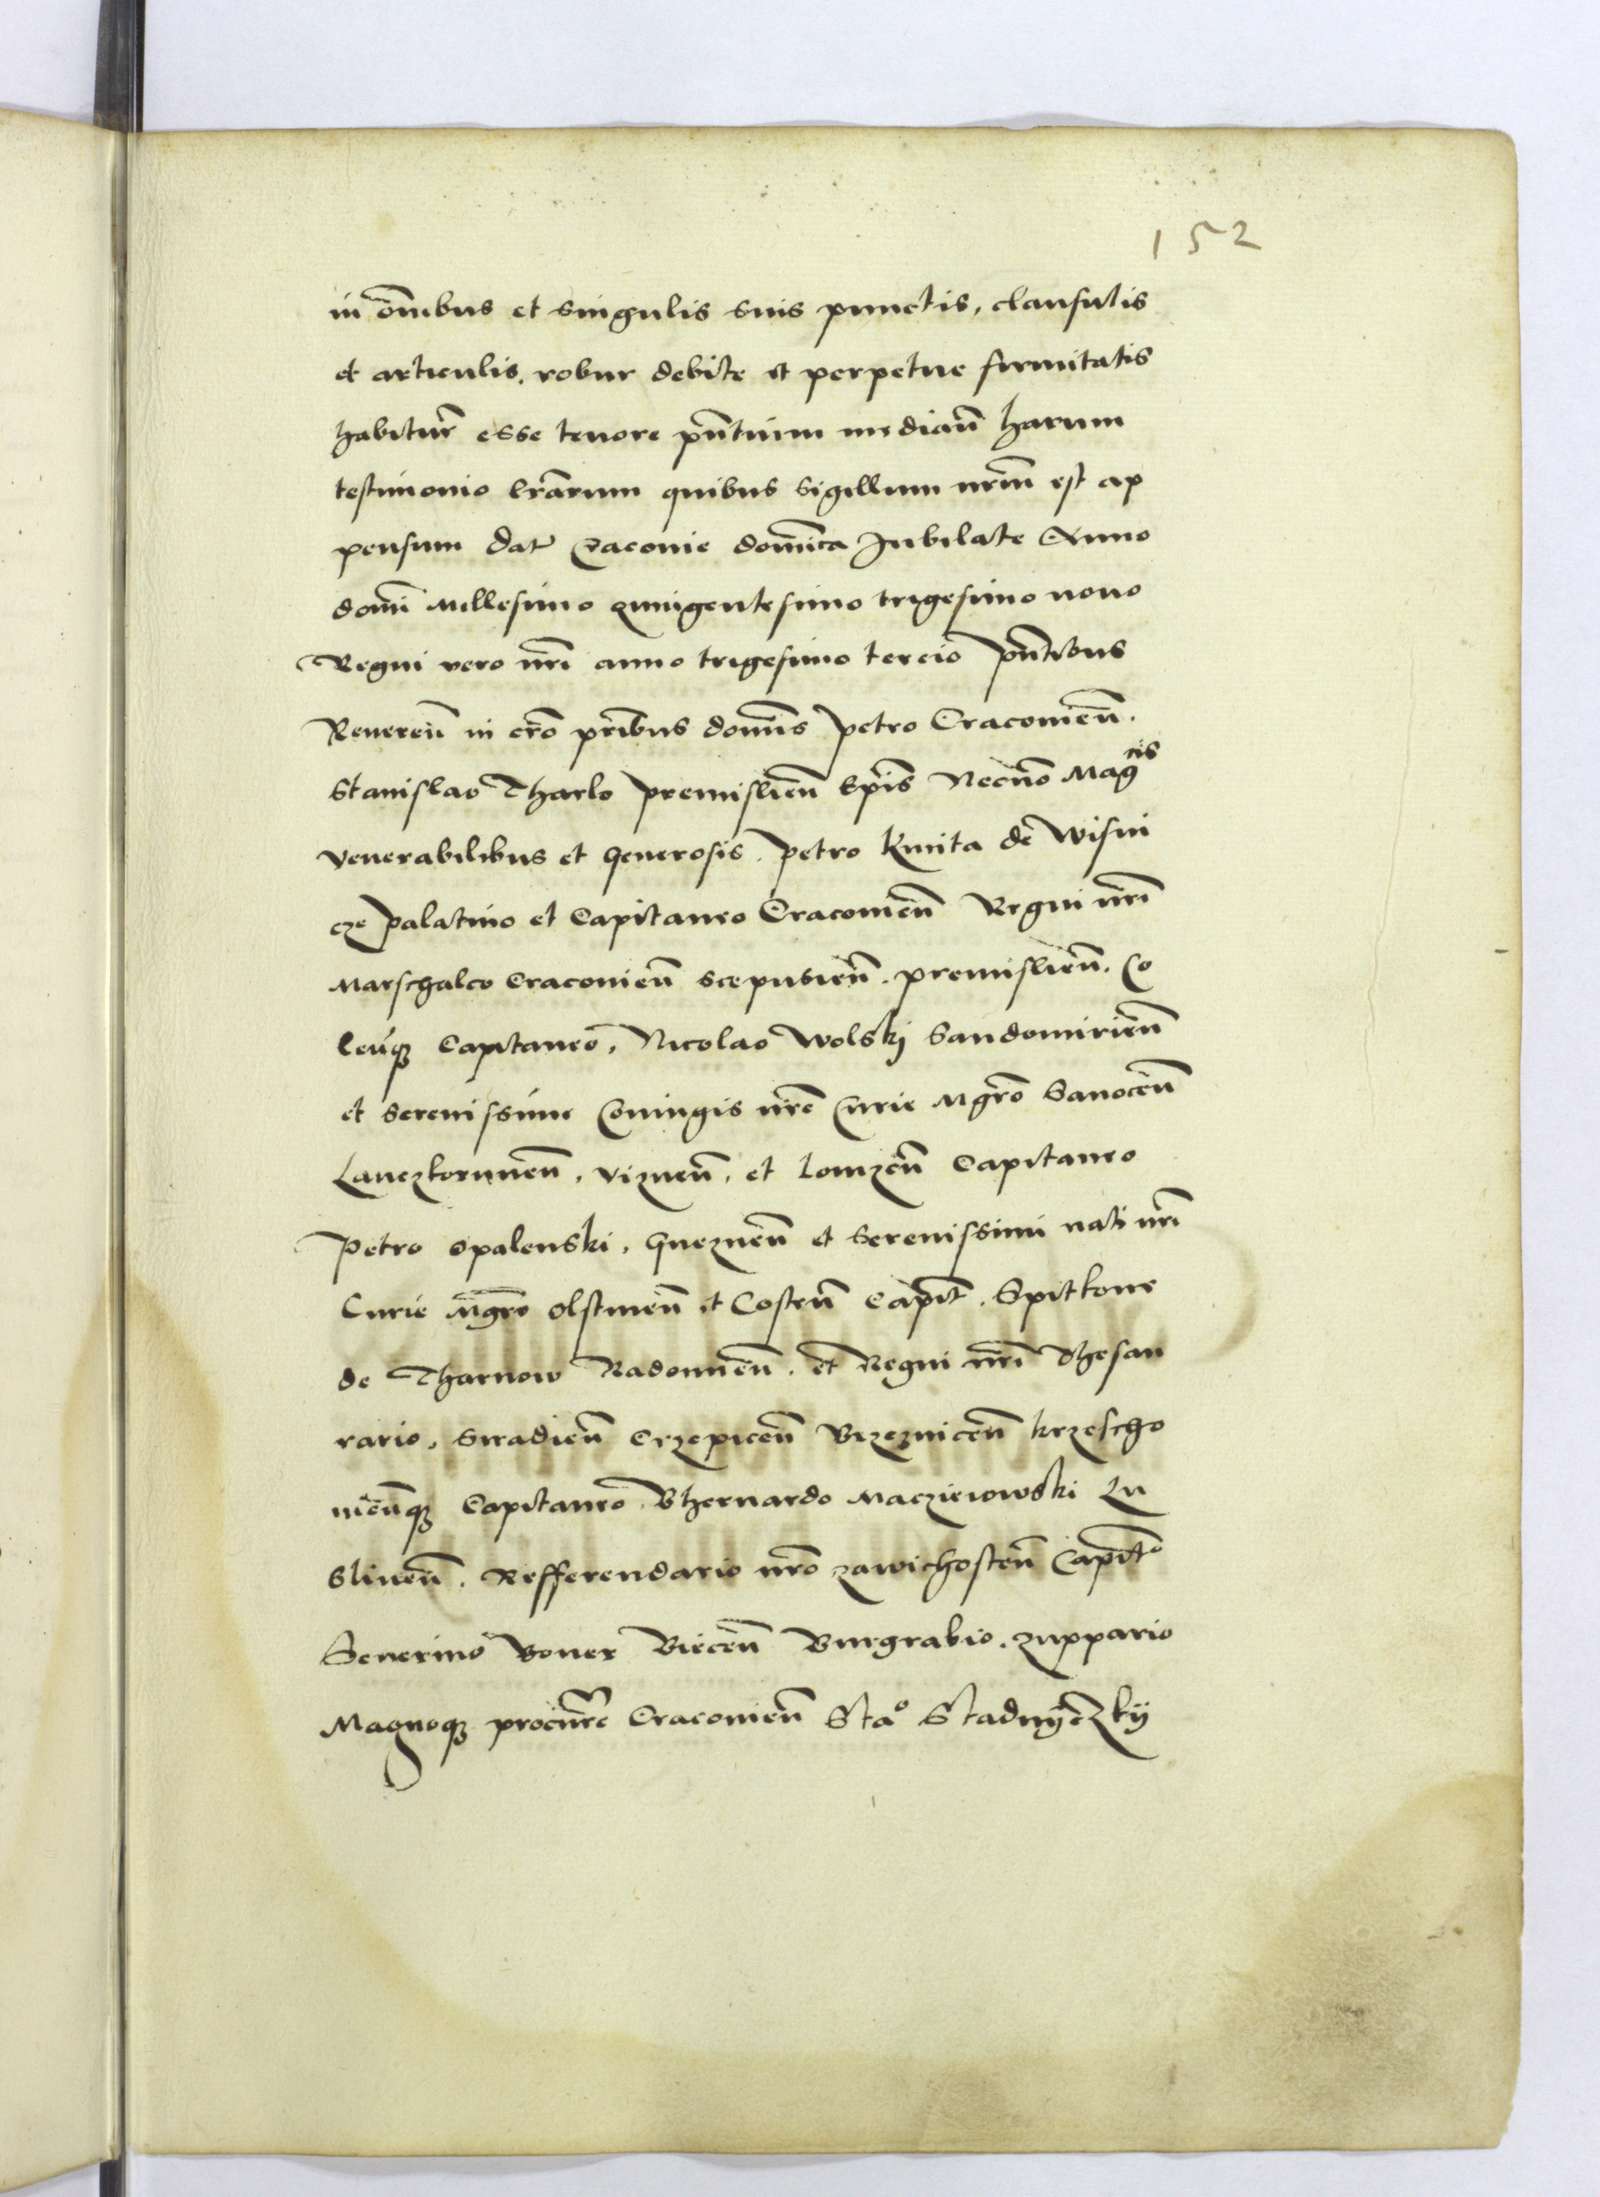 152
in om̄ibus et singulis suis punctis, clausulis
et articulis, robur debite et perpetue firmitatis
habitur̄ esse tenore pn̄tium median̄ harum
testimonio lrārum quibus sigillum nrm̄ est ap
pensum Dat̄ Cracovie domīca Jubilate Anno
domī Millesimo quingentesimo trigesimo nono
Regni vero nrī anno trigesimo tercio pn̄tibus
Reveren̄ in crō prībus domīs Petro Cracovien̄.
Stanislao Tharlo Premislien̄ Epīs Necnō Magcis
venerabilibus et generosis. Petro Kmita de Wisni
cze Palatino et Capitaneo Cracovien̄ Regni nrī
Marschalco Cracovien̄ Scepusien̄. Premislien̄. Co
len̄q Capitaneo, Nicolao Wolskj Sandomirien̄
et Serenissime Coniugis nrē Curie Mgrō Sanocen̄
Lanczkorunen̄, Viznen̄, et Lomzen̄ Capitaneo
Petro Opalenski, Gneznen̄ et Serenissimi nati nrī
Curie Mgrō Olstinen̄ et Costen̄ Capit̄. Spitkone
de Tharnow Radomien̄. et Regni nrī Thesau
rario, Siradien̄ Crzepicen̄ Brzeznicen̄ krzescho
vien̄q Capitaneo Bhernardo Macziewowski Lu
blinen̄. Refferendario nrō zawichosten̄ Capit̄o
Severino Boner Biecen̄ Burgrabio. zuppario
Magnoq procurē Cracovien̄ Stao Stadnyczkij